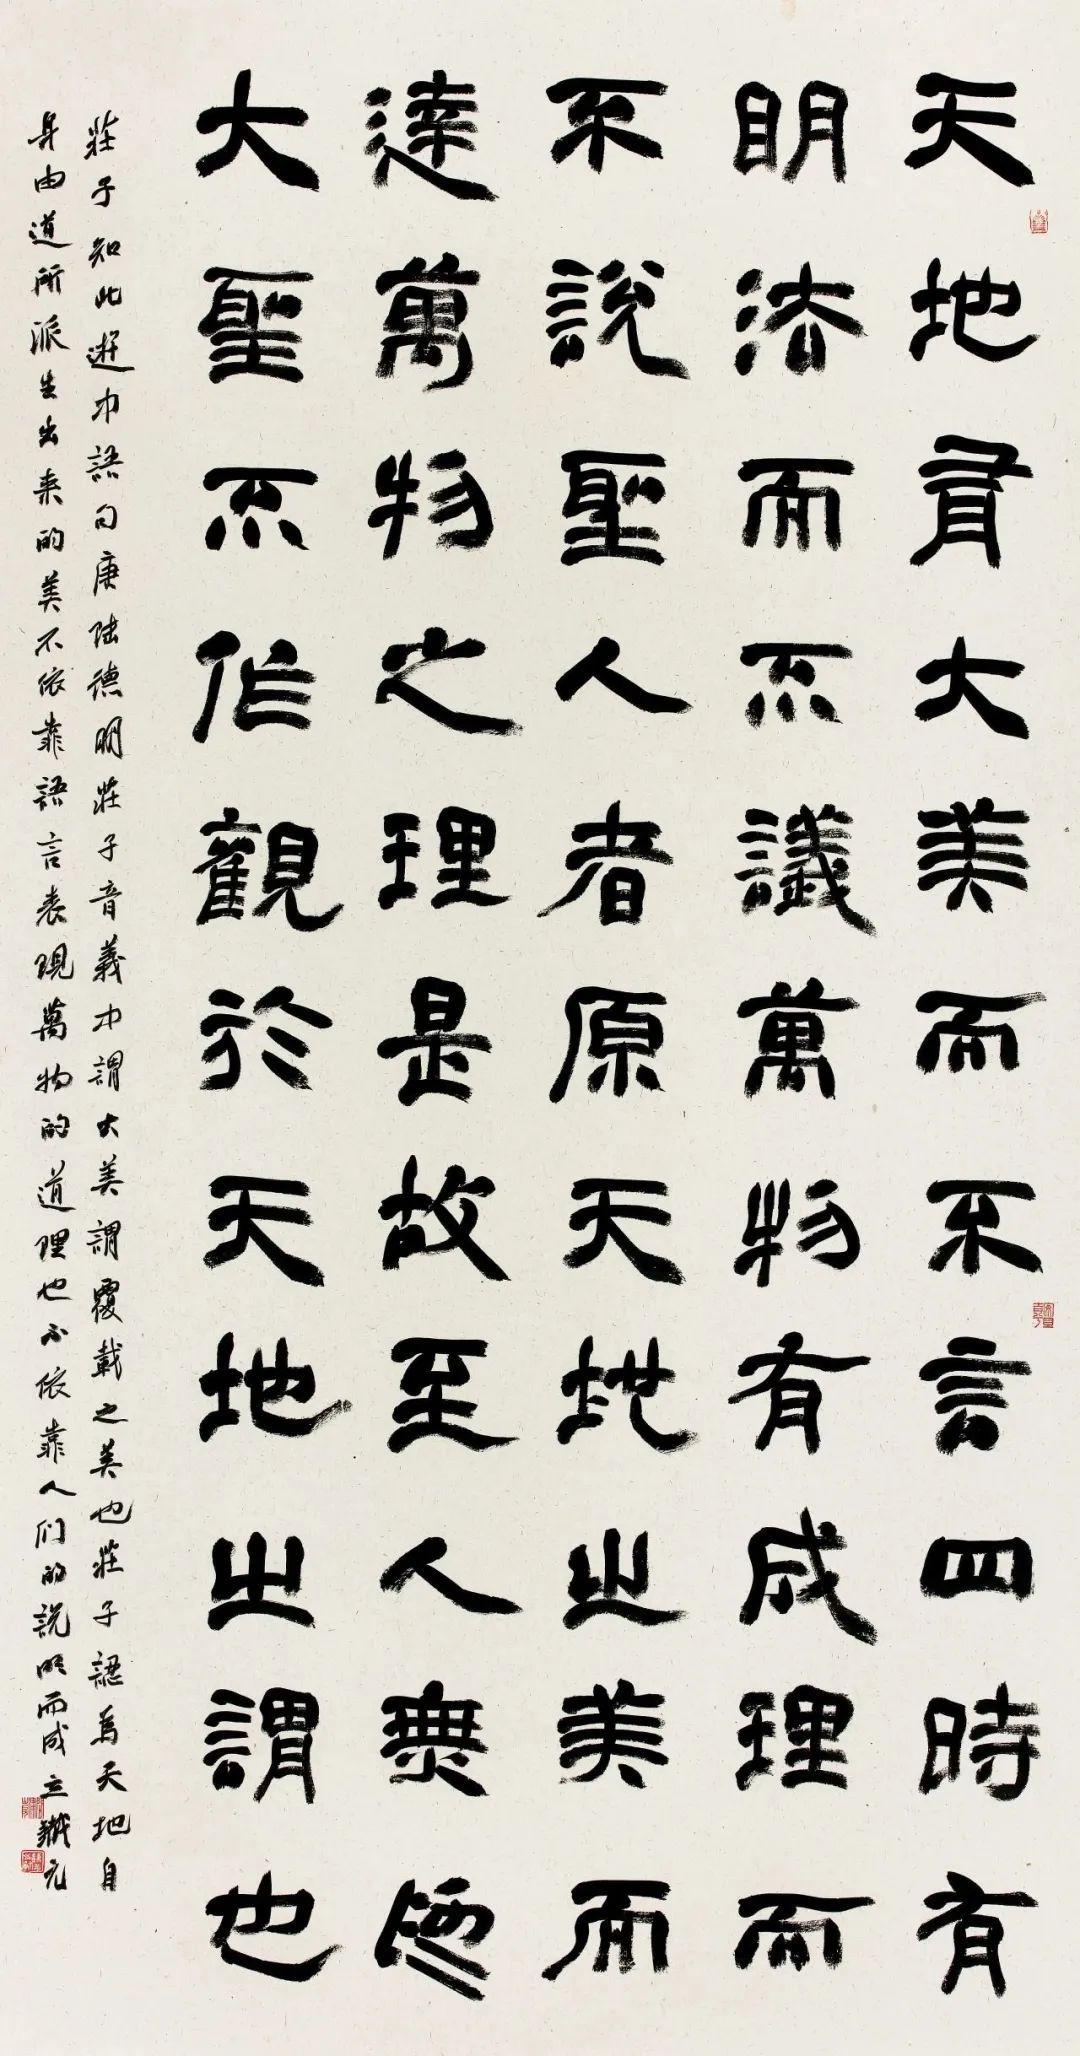 天地有大美而不言四時有
明法而不議萬物有成理而
不說聖人者原天地之美而
達萬物之理是故至人無為
大聖不作觀於天地之謂也
莊子知北遊中語句唐陸德明莊子音義中謂大美謂覆載之美也莊子認為天地自
身由道所派生出来的美不依靠語言表現萬物的道理也不依靠人们的說明而成立